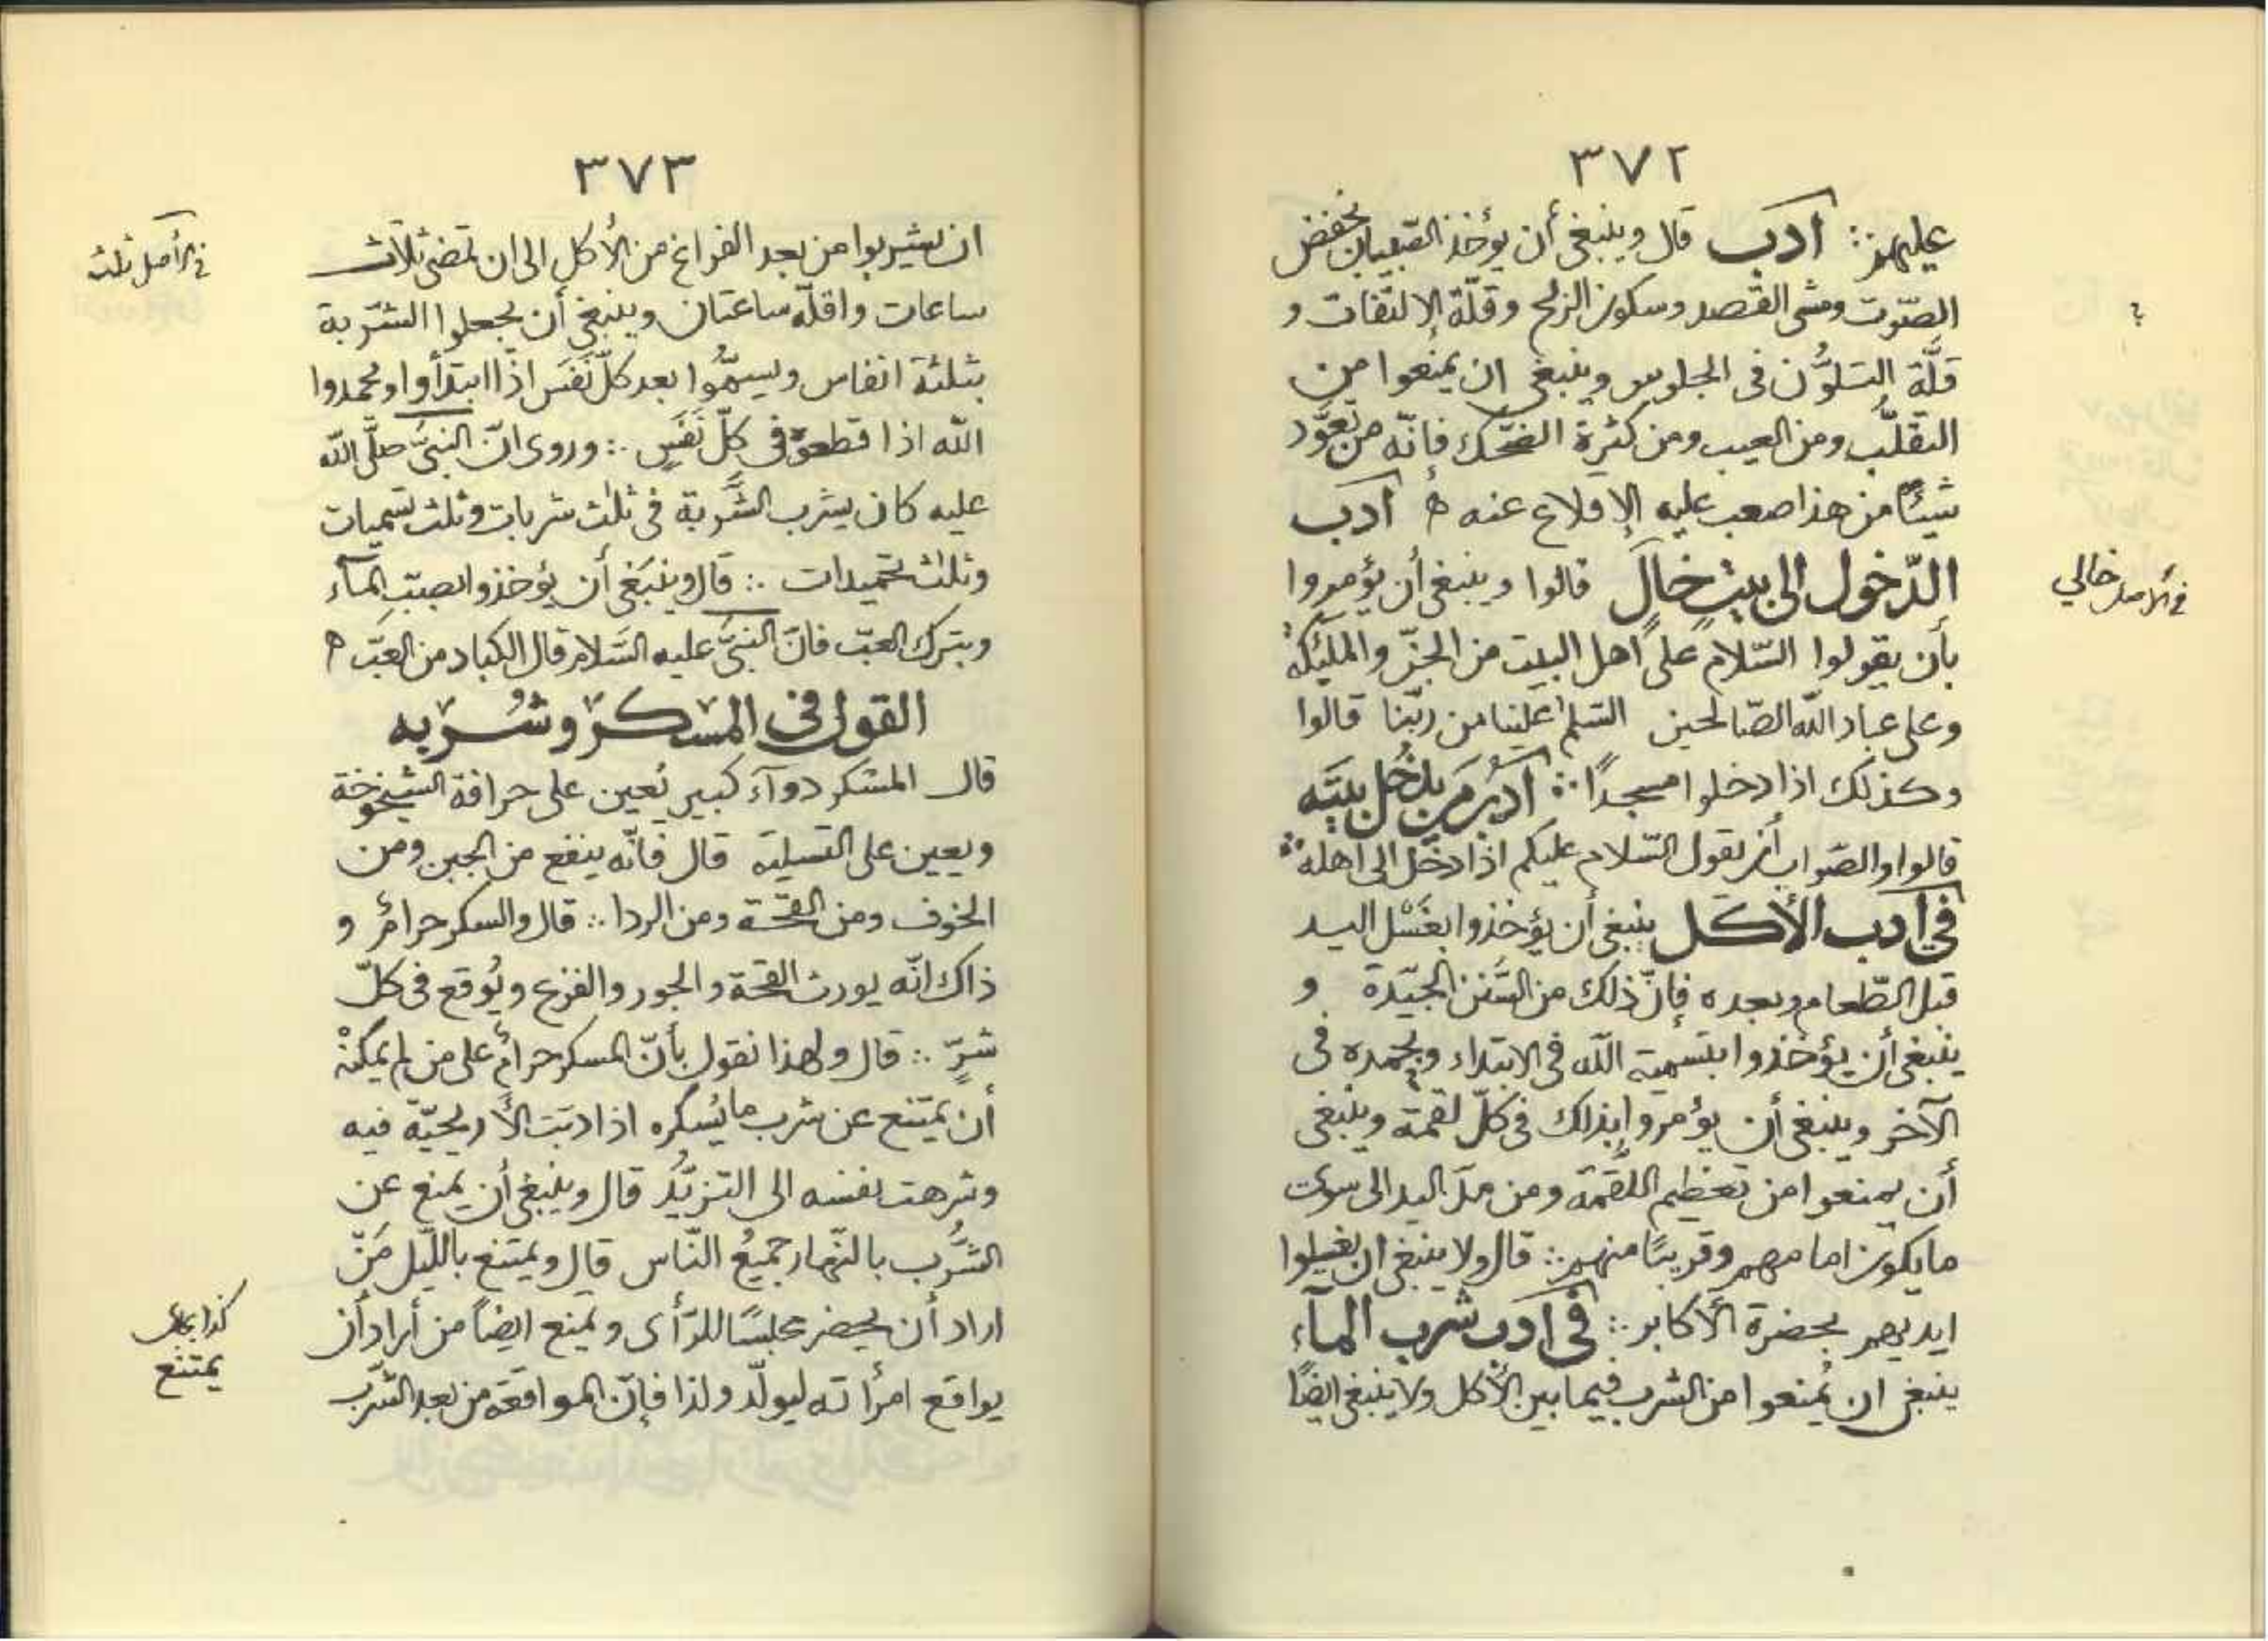 ٣٧٢
عليهم ∴ أدب قال وينبغي أن يؤخذ الصبيان بخفض
الصّوت ومشى القصد وسكون الريح وقلّة الالتفات و
قلَّة التلوُّن فى الجلوس وينبغى ان يمنعوا من
التقلُّب ومن العيب ومن كثرة الضحك فإنّه من تعوَّد
شيئًا من هذا صعب عليه الإقلاع عنه ه أدب
الدّخول الى بيت خالٍ قالوا وينبغى أن يؤمروا
بأن يقولوا السّلام على أهل البيت من الجنّ والملٰئكة
وعلى عباد الله الصّالحين السّلم علينا من ربّنا قالوا
وكذلك اذا دخلوا مسجدًا ∴ أدب من يدخل بيته
قالوا والصّواب أن يقول السّلام عليكم اذا دخل الى أهله
فى أدب الأكل ينبغى أن يؤخذوا بغَسْل اليد
قبل الطّعام وبعده فإنّ ذلك من السُّنن الجيّدة و
ينبغى أن يؤخذوا بتسمية الله فى الابتداء وبحمده فى
الآخر وينبغى أن يؤمروا بذلك فى كلّ لقمة وينبغى
أن يمنعوا من تعظيم اللّقمة ومن مدّ اليد الى سوى
ما يكون امامهم وقريبًا منهم ∴ قال ولا ينبغى ان يغسلوا
ايديهم بحضرة الأكابر ∴ فى أدب شرب المآء
ينبغى ان يُمنعوا من الشرب فيما بين الأكل ولا ينبغى ايضًا
؟
فى الأصل خالي
٣٧٣
ان يشربوا من بعد الفراغ من الأكل الى ان تمضى ثلاث
ساعات واقلّه ساعتان وينبغى أن يجعلوا الشّربة
بثلثة انفاس ويسمُّوا بعد كلّ نَفَس اذا ابتدأوا ويحمدوا
الله اذا قطعوه فى كلّ نَفَسٍ ∴ وروى انّ النبىَّ صلَّى الله
عليه كان يشرب الشَّربة فى ثلٰث شربات وثلٰث تسميات
وثلٰث تحميدات ∴ قال وينبغى أن يؤخذوا بصبّ المآء
وبترك العبّ فانّ النبىَّ عليه السَّلام قال الكباد من العَبّ ه
القول فى المسكر وشُربه
قال المسكر دوآء كبير يُعين على حرافة الشيخوخة
ويعين على التسلية قال فانّه ينفع من الجبن ومن
الخوف ومن القحة ومن الردا ∴ قال والسكر حرامٌ و
ذاك انّه يورث القحة والجور والفزع ويُوقع فى كلّ
شرٍّ ∴ قال ولهذا نقول بأنّ المسكر حرامٌ على من لم يمكنْه
أن يمتنع عن شرب ما يُسكره اذا دبّت الأريحيّة فيه
وشرهت نفسه الى التزيُّد قال وينبغى أن يمنع عن
الشُّرب بالنّهار جميعُ النّاس قال ويمتنع بالليل مَنْ
اراد أن يحضر مجلسًا للرّأى ويمنع ايضاً من أراد أن
يواقع امرأته ليولّد ولذا فإنّ المواقعة من بعد الشّرب
فى الأصل ثلث
كذا
يمتنع